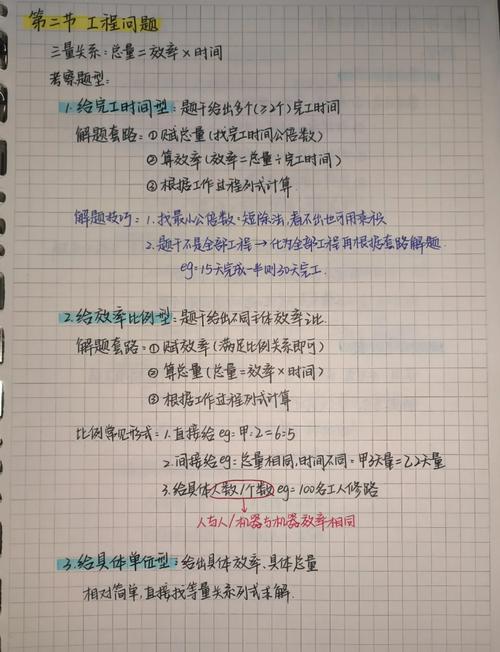 第二节 工程问题
三量关系:总量=效率×时间
考察题型:
1.给完工时间型:题干给出多个(≥2个)完工时间
解题套路:①赋总量(找完工时间公倍数)
②算效率(效率=总量÷完工时间)
③根据工作过程列式计算.
解题技巧:1.找最小公倍数:短除法,看不出也可用乘积
2.题干不是全部工程→化为全部工程再根据套路解题.
eg=15天完成一半则30天完工.
2.给效率比例型:题干给出不同主体效率之比.
解题套路:①赋效率(满足比例关系即可)
②算总量(总量=效率×时间)
③根据工作过程列式计算
比例常见形式:1.直接给eg=甲:乙=6:5
2.间接给eg=总量相同,时间不同=甲3天量=乙2天量
3.给具体人数/个数eg=100名工人修路
人与人/机器与机器效率相同
3.给具体单位型:给出具体效率、具体总量
相对简单,直接找等量关系列式求解.